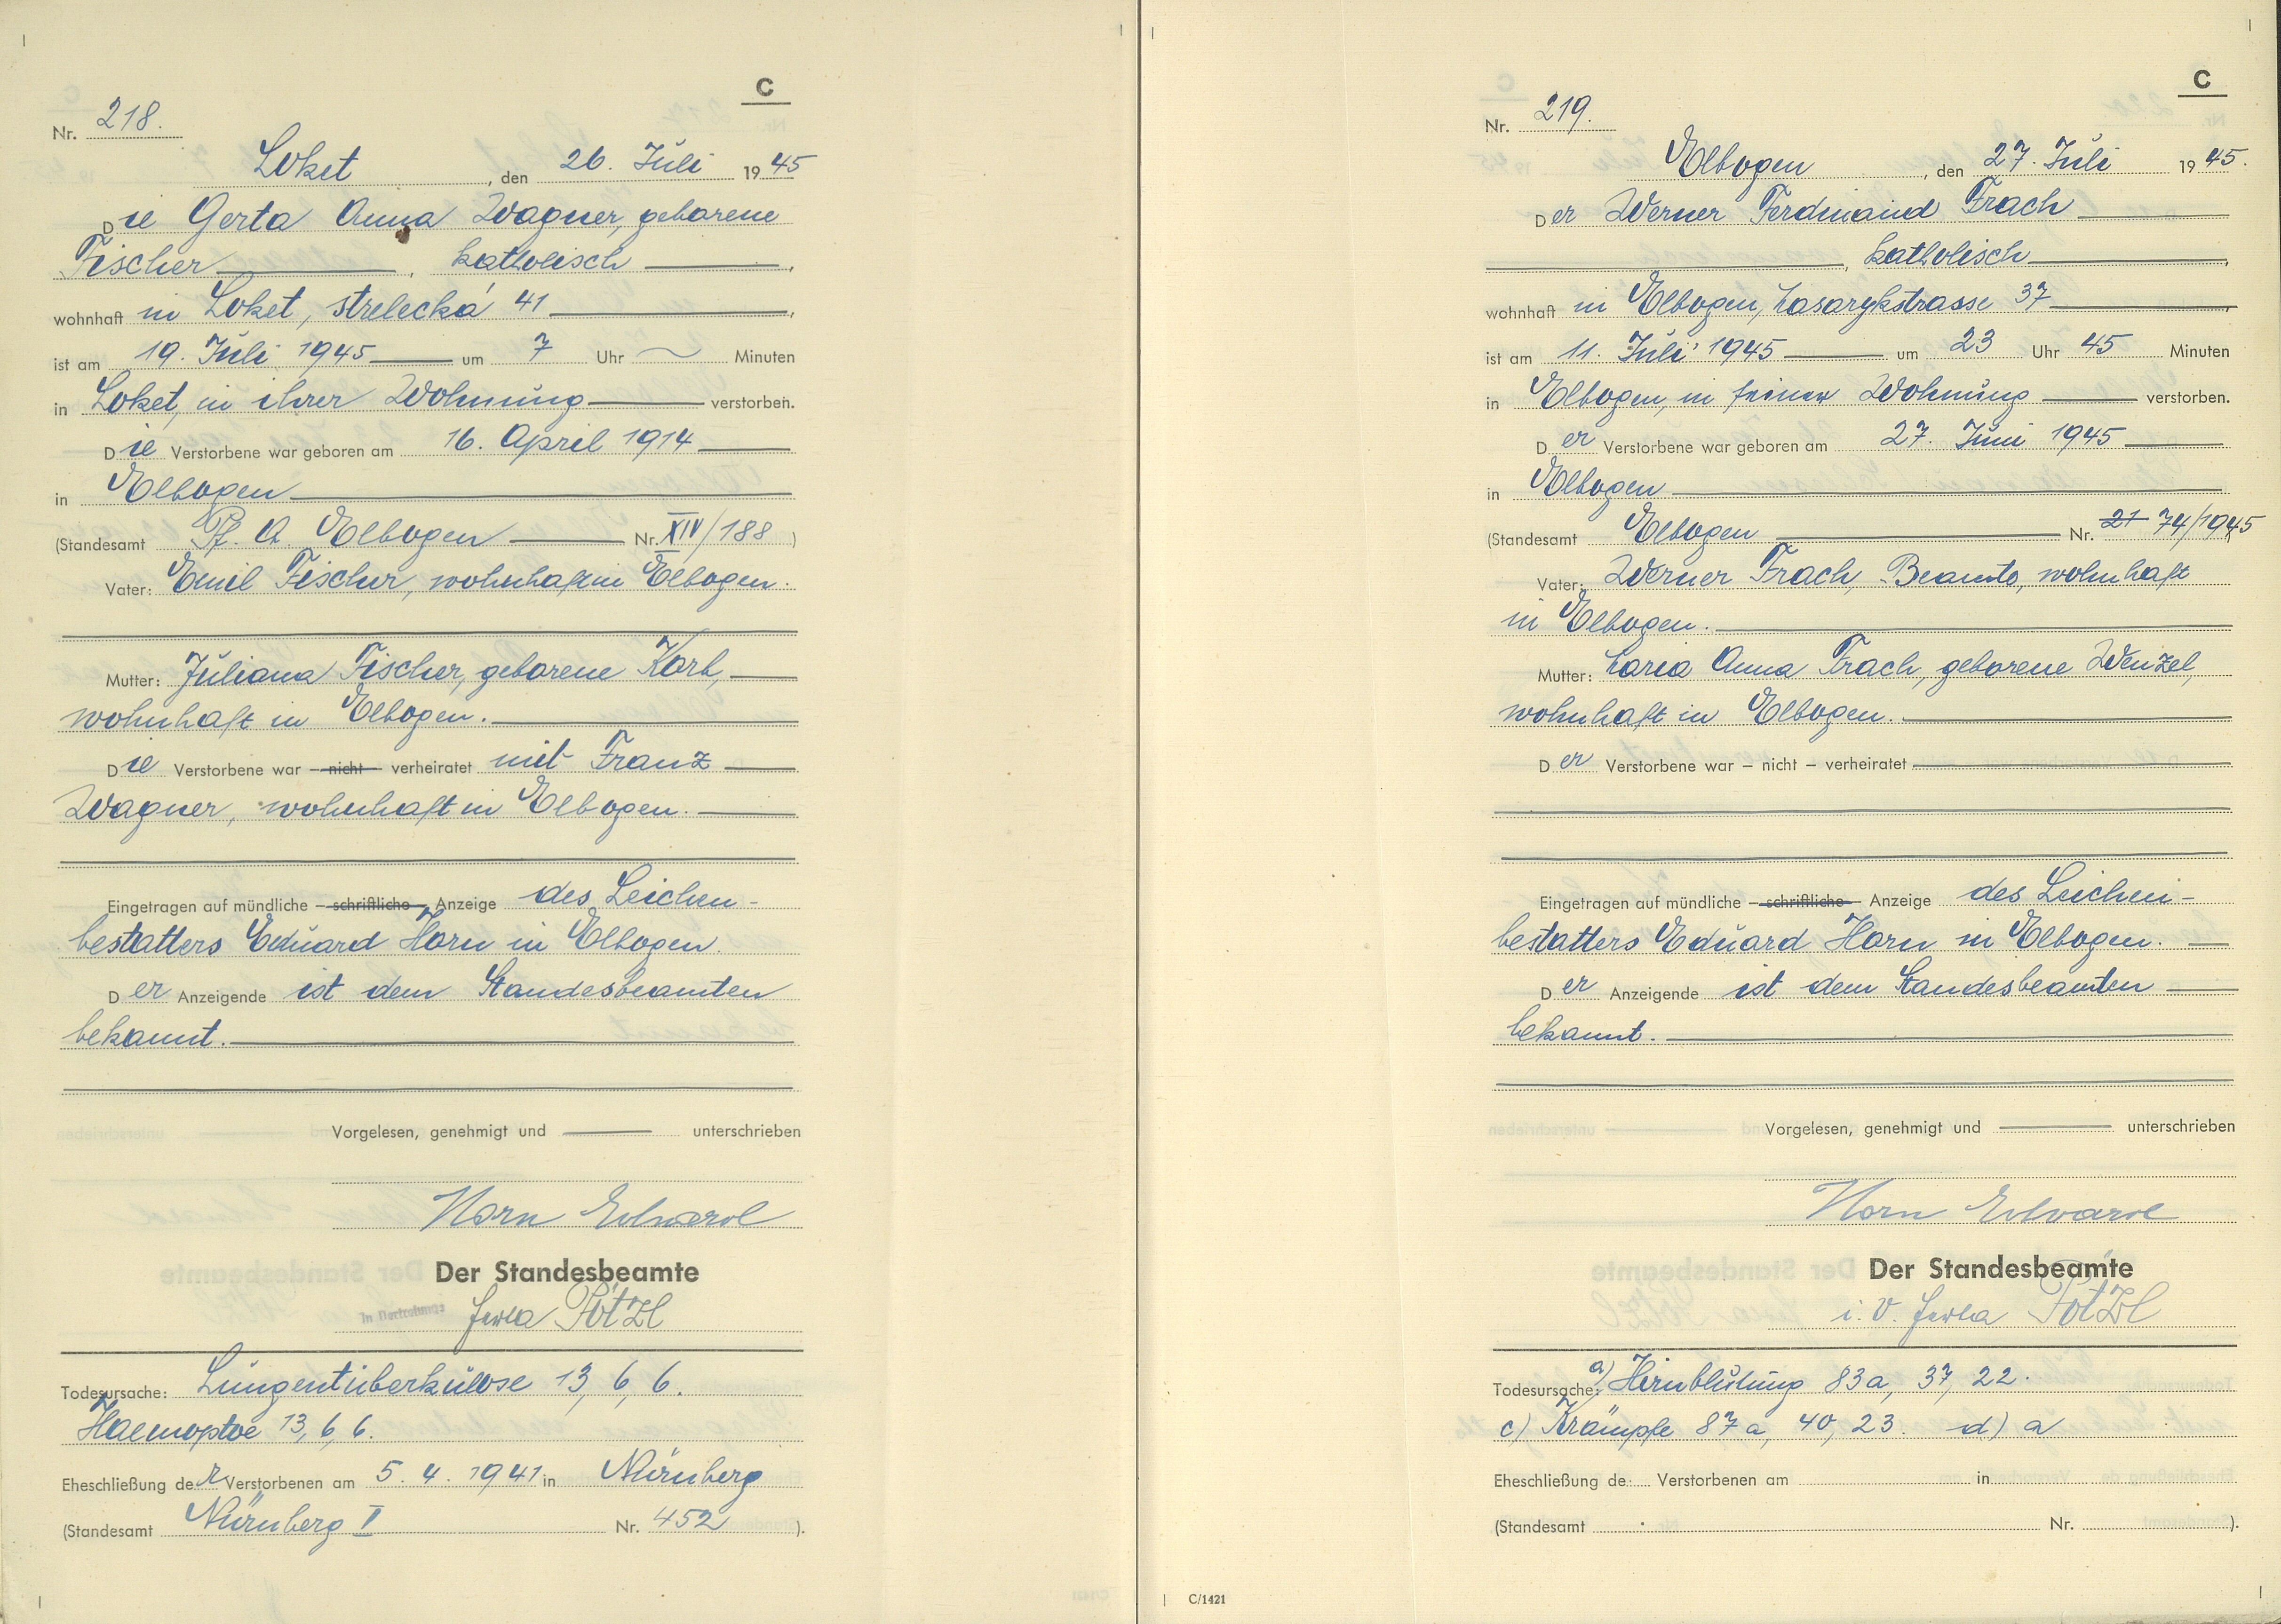 C
Nr. 218.
Loket, den 26. Juli 1945
Die Gerta Anna Wagner, geborene
Fischer, katholisch,
wohnhaft in Loket, strelecká 41,
ist am 19. Juli 1945 um 7 Uhr ~ Minuten
in Loket, in ihrer Wohnung verstorben.
Die Verstorbene war geboren am 16. April 1914
in Elbogen
(Standesamt Pf. A. Elbogen Nr. XIV/188)
Vater: Emil Fischer, wohnhaft in Elbogen.
Mutter: Juliana Fischer, geborene Korb,
wohnhaft in Elbogen.
Die Verstorbene war – nicht – verheiratet mit Franz
Wagner, wohnhaft in Elbogen.
Eingetragen auf mündliche – schriftliche – Anzeige des Leichen-
bestatters Eduard Horn in Elbogen.
Der Anzeigende ist dem Standesbeamten
bekannt.
Vorgelesen, genehmigt und unterschrieben
Horn Eduard
Der Standesbeamte
In Vertretung: Pötzl
Todesursache: Lungentuberkulose 13, 6, 6.
Haemoptoe 13, 6, 6.
Eheschließung der Verstorbenen am 5. 4. 1941 in Nürnberg
(Standesamt Nürnberg I Nr. 452).
C
Nr. 219.
Elbogen, den 27. Juli 1945.
Der Werner Ferdinand Frach
, katholisch,
wohnhaft in Elbogen, Masarykstrasse 37,
ist am 11. Juli 1945 um 23 Uhr 45 Minuten
in Elbogen, in seiner Wohnung verstorben.
Der Verstorbene war geboren am 27. Juni 1945
in Elbogen
(Standesamt Elbogen Nr. 21 74/1945
Vater: Werner Frach, Beamte, wohnhaft
in Elbogen.
Mutter: Maria Anna Frach, geborene Wenzel,
wohnhaft in Elbogen.
Der Verstorbene war – nicht – verheiratet
Eingetragen auf mündliche – schriftliche – Anzeige des Leichen-
bestatters Eduard Horn in Elbogen.
Der Anzeigende ist dem Standesbeamten
bekannt.
Vorgelesen, genehmigt und unterschrieben
Horn Eduard
Der Standesbeamte
i. V. Pötzl
Todesursache: a) Hirnblutung 83a, 37, 22.
c) Krämpfe 87a, 40, 23. d) a
Eheschließung de Verstorbenen am in
(Standesamt Nr. ).
C/1421